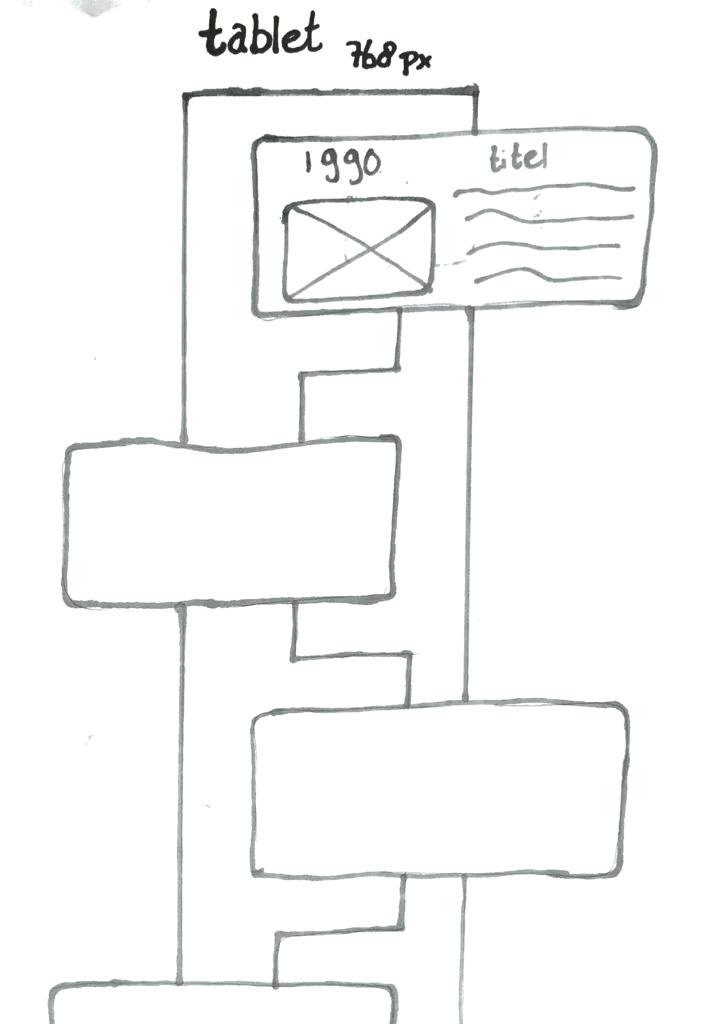 tablet
768 px
1990
titel